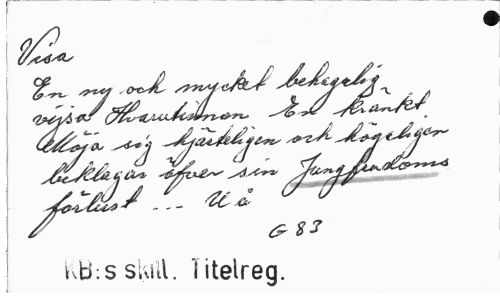 Visa
En ny och mycket behagelig
vijsa Hvarutinnan En kränkt
Möja sig hjärteligen och högeligen
beklagar öfver sin Jungfrudoms
förlust ... U å
G 83
KB:s skill. Titelreg.